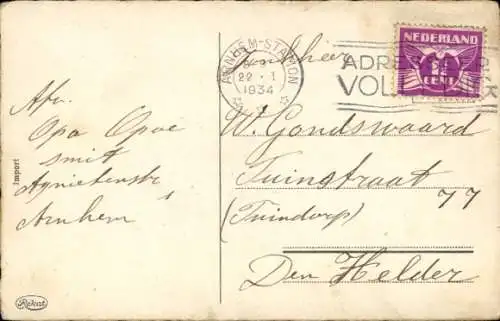 ARNHEM-STATION
22 · I
1934
NEDERLAND
1½
CENT
ADRES
VOL
Jonkheer
W. Gondswaard
Tuinstraat 77
(Tuindorp)
Den Helder
Afz.
Opa Opoe
smit
Agnietenstr
1
Arnhem
Import
Rekad